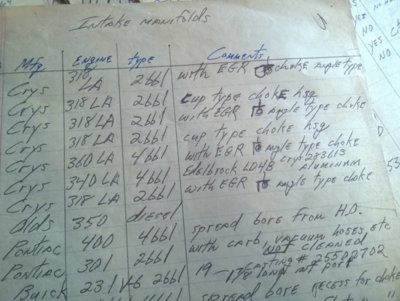 Intake Manifolds
Mfg Engine type Comments
Crys 318 LA 2bbl with EGR choke angle type
Crys 318 LA 2bbl cup type choke hsg
Crys 318 LA 2bbl with EGR To angle type choke
Crys 318 LA 2bbl cup type choke hsg
Crys 360 LA 4bbl with EGR To angle type choke
Crys 340 LA 4bbl Edelbrock LD4B aluminum
Crys 318 LA 2bbl with EGR To angle type choke
Olds 350 diesel
Pontiac 400 4bbl spread bore from H.O.
Pontiac 301 2bbl with carb, vacuum hoses, etc NOT CLEANED
Buick 231 V-6 2bbl casting # 25502702
spread bore recess for choke
YES
NO